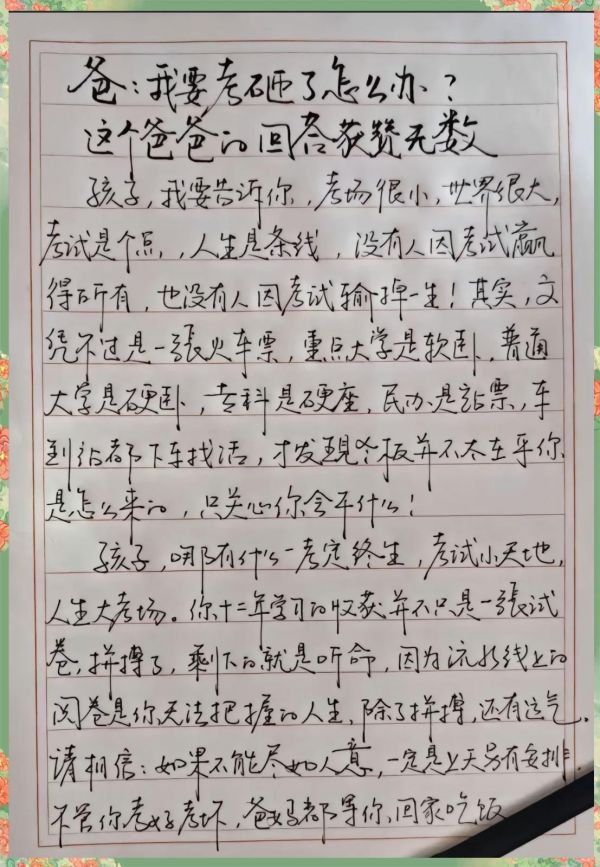 爸:我要考砸了怎么办?
这个爸爸的回答获赞无数
孩子,我要告诉你,考场很小,世界很大,
考试是个点,,人生是条线,没有人因考试赢
得所有,也没有人因考试输掉一生!其实,文
凭不过是一张火车票,重点大学是软卧,普通
大学是硬卧,专科是硬座,民办是站票,车
到站都下车找活,才发现老板并不太在乎你
是怎么来的,只关心你会干什么!
孩子,哪有什么一考定终生,考试小天地,
人生大考场。你十二年学习的收获并不只是一张试
卷,拼搏了,剩下的就是听命,因为流水线上的
阅卷是你无法把握的人生,除了拼搏,还有运气。
请相信:如果不能尽如人意,一定是上天另有安排.
不管你考好考坏,爸妈都等你,回家吃饭